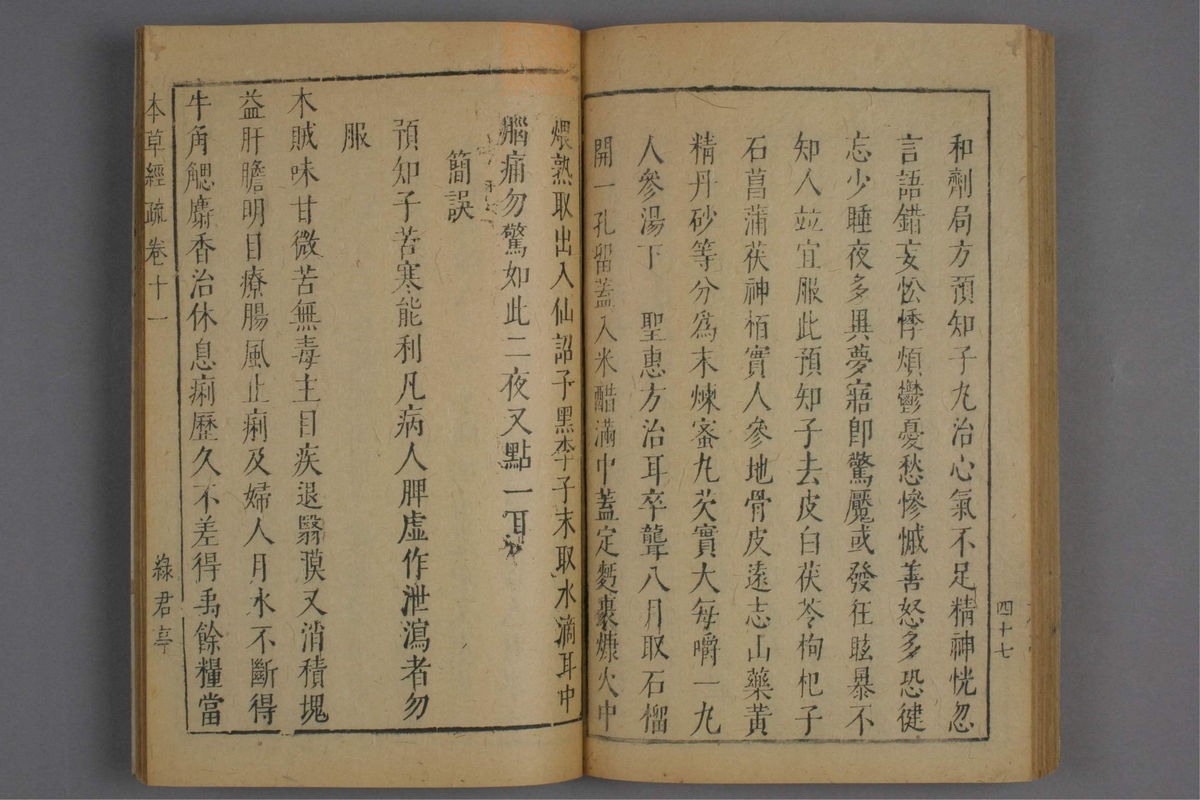 和劑局方預知子丸治心氣不足精神恍忽
言語錯妄忪悸煩鬱憂愁慘慽善怒多恐健
忘少睡夜多異夢寤卽驚魘或發狂眩暴不
知人竝宜服此預知子去皮白茯苓枸杞子
石菖蒲茯神栢實人參地骨皮遠志山藥黃
精丹砂等分爲末煉蜜丸芡實大每嚼一丸
人參湯下 聖惠方治耳卒聾八月取石榴
開一孔留蓋入米醋滿中蓋定麪裹煻火中
四十七
煨熟取出入仙詔子黑李子末取水滴耳中
腦痛勿驚如此二夜又點一耳
簡誤
預知子苦寒能利凡病人脾虛作泄瀉者勿
服
木賊味甘微苦無毒主目疾退翳膜又消積塊
益肝膽明目療腸風止痢及婦人月水不斷得
牛角䚡麝香治休息痢歷久不差得禹餘糧當
本草經疏卷十一
綠君亭